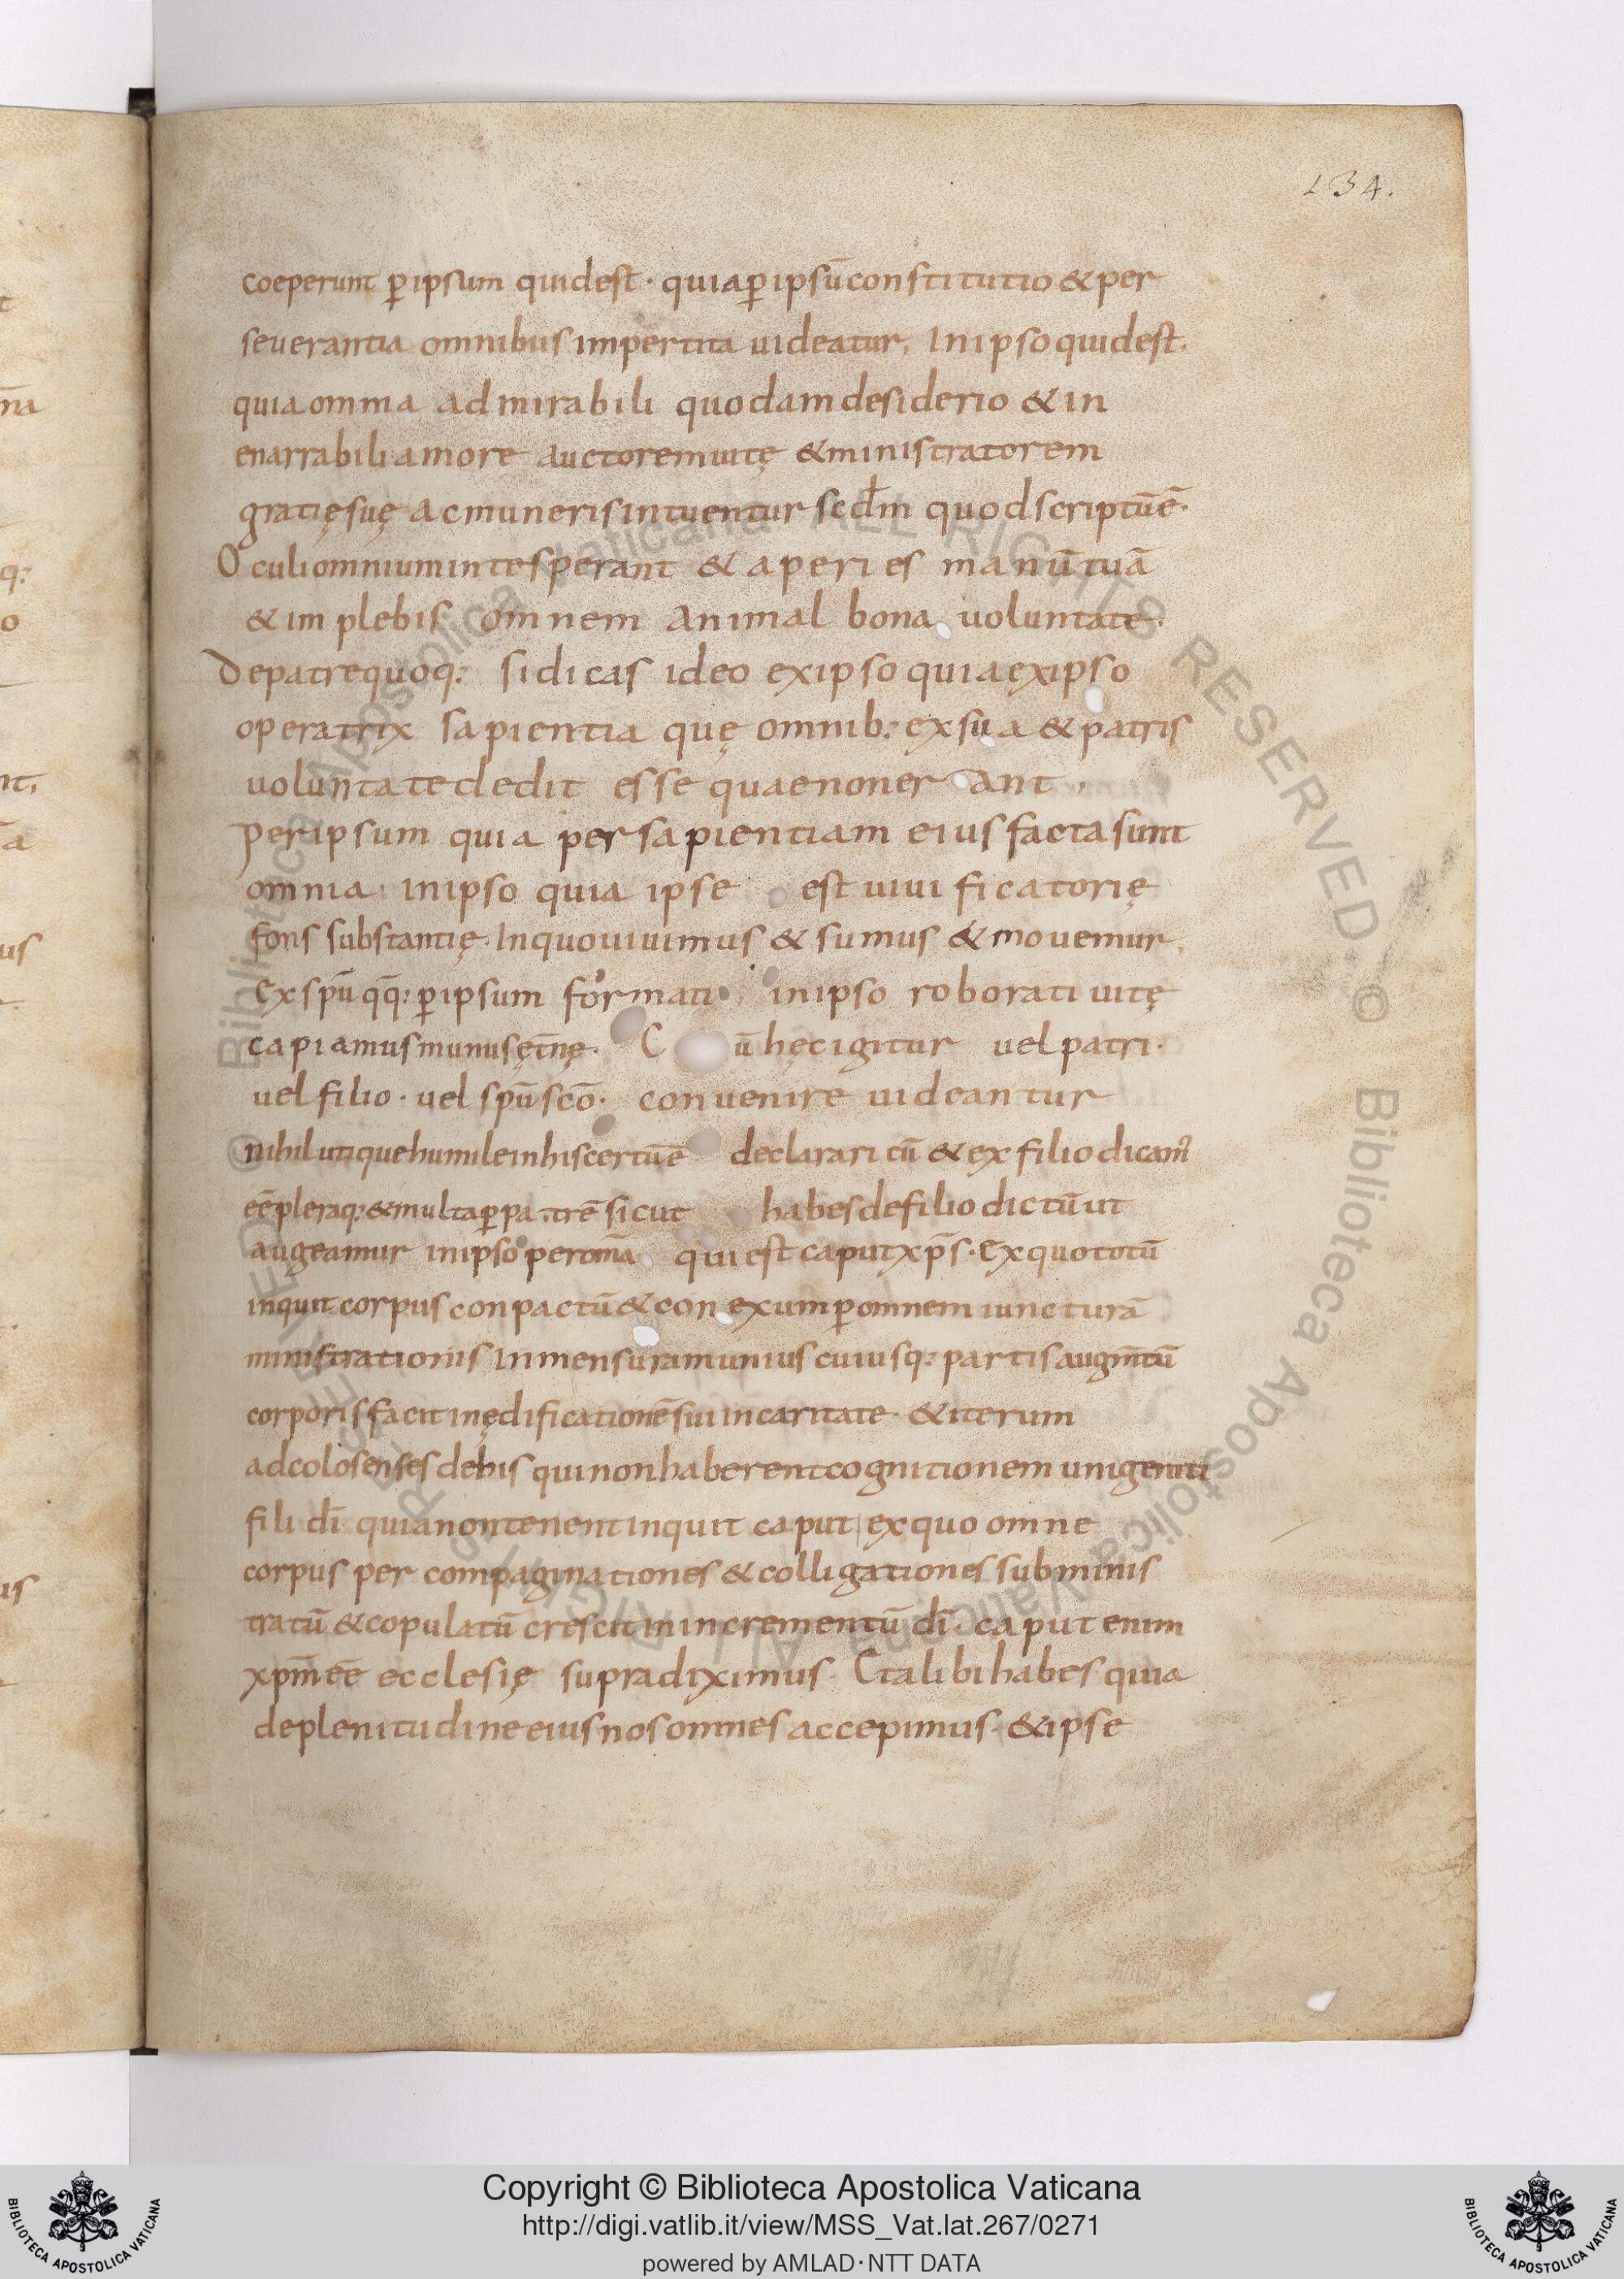 134.
coeperunt p̄ ipsum quidest· quia p̄ ipsū constitutio & per
seuerantia omnibus impertita uideatur, In ipso quidest·
quia omnia admirabili quodam desiderio & in
enarrabili amore auctorem uitę & ministratorem
gratię suę ac muneris intuentur scdm̄ quod scriptū ē·
Oculi omnium in te sperant & aperies manū tuā
& imples omnem animal bona uoluntate·
De patre quoq: si dicas ideo ex ipso quia ex ipso
operatrix sapientia quę omnib: ex sua & patris
uoluntate dedit esse quae non erant,
per ipsum quia per sapientiam eius facta sunt
omnia· in ipso quia ipse est uiuificatorię
fons substantię· In quo uiuimus & sumus & mouemur,
Ex spū qq̄: p̄ ipsum formati in ipso roborati uitę
capiamus munus ęt̄nę· Cū hęc igitur uel patri·
uel filio· uel spū scō· conuenire uideantur
nihil utique humile in his certū ē declarari cū & ex filio dicam̄
eē pleraq: & multa p̄ patrē sicut habes de filio dictū ut
augeamur in ipso per om̄a qui est caput xp̄s· Ex quo totū
inquit corpus conpactū & conexum p̄ omnem iuncturā
ministrationis In mensuram unius cuiusq: partis augm̄tū
corporis facit in ędificationē sui in caritate· & iterum
ad colosenses de his qui non haberent cognitionem unigeniti
fili dī quia non tenent inquit caput ex quo omne
corpus per compaginationes & colligationes subminis
tratū & copulatū crescit in incrementū dī· caput enim
xpm̄ eē ecclesię supra diximus· Et alibi habes quia
de plenitudine eius nos omnes accepimus· & ipse
Copyright © Biblioteca Apostolica Vaticana
http://digi.vatlib.it/view/MSS_Vat.lat.267/0271
powered by AMLAD · NTT DATA